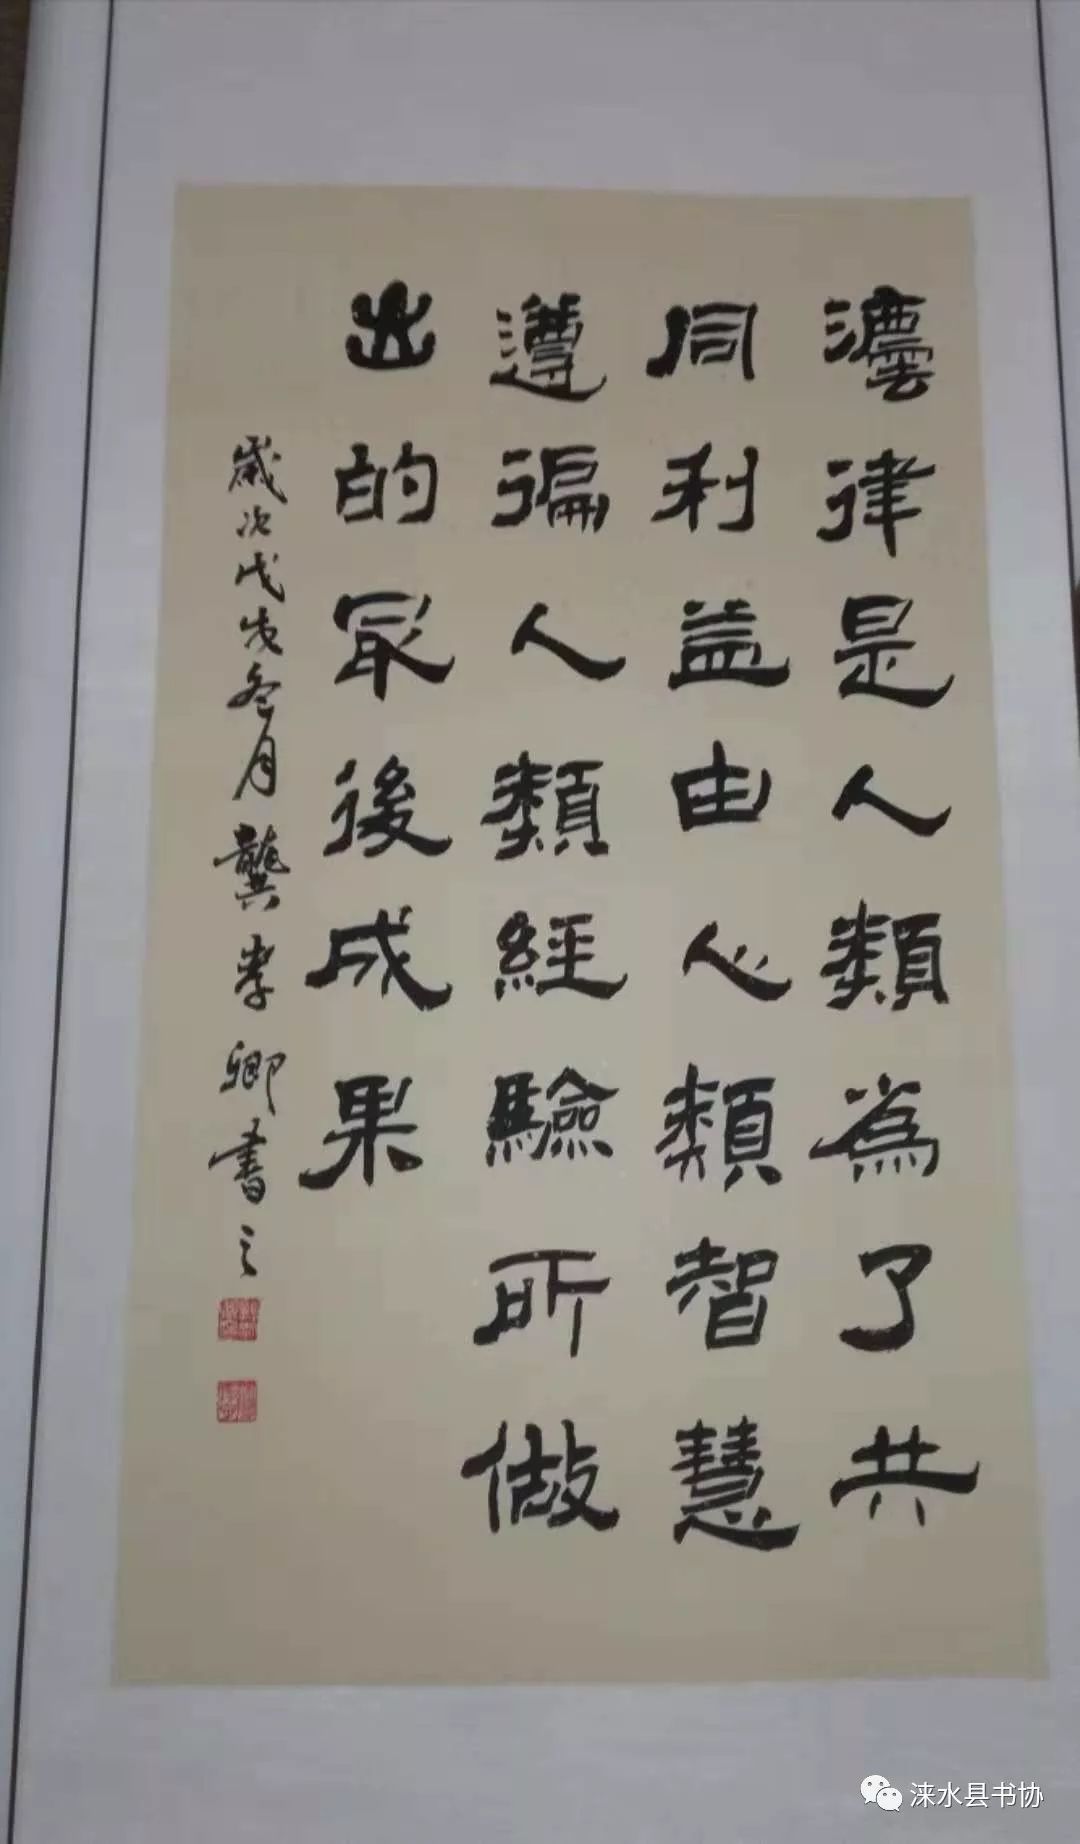 灋律是人類為了共
同利益由人類智慧
遵循人類經驗所做
出的最後成果
歲次戊戌冬月龔孝卿書之
涞水县书协